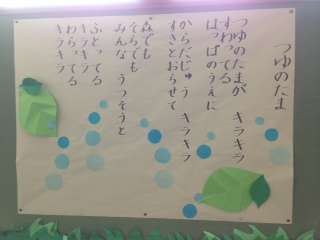 つゆのたま
つゆのたまが　キラキラ
すわってる
はっぱのうえに
からだじゅう　キラキラ
すきとおらせて
森でも
そらでも
みんな　うつそうと
ふとってる
キラキラ
わらってる
キラキラ